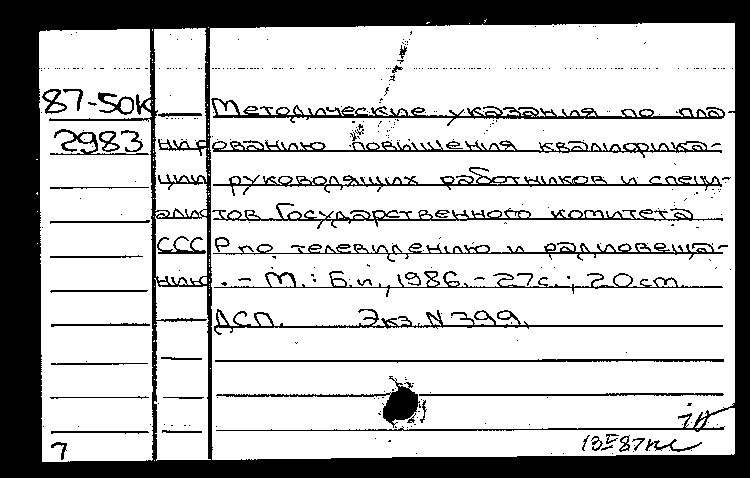 87-50К Методические указания по пла-
2983 нированию повышения квалифика-
ции руководящих работников и специ-
алистов Государственного комитета
СССР по телевидению и радиовеща-
нию. - М.: Б.и., 1986. - 27с.; 20 cm
ДСП. Экз. N 399.
7